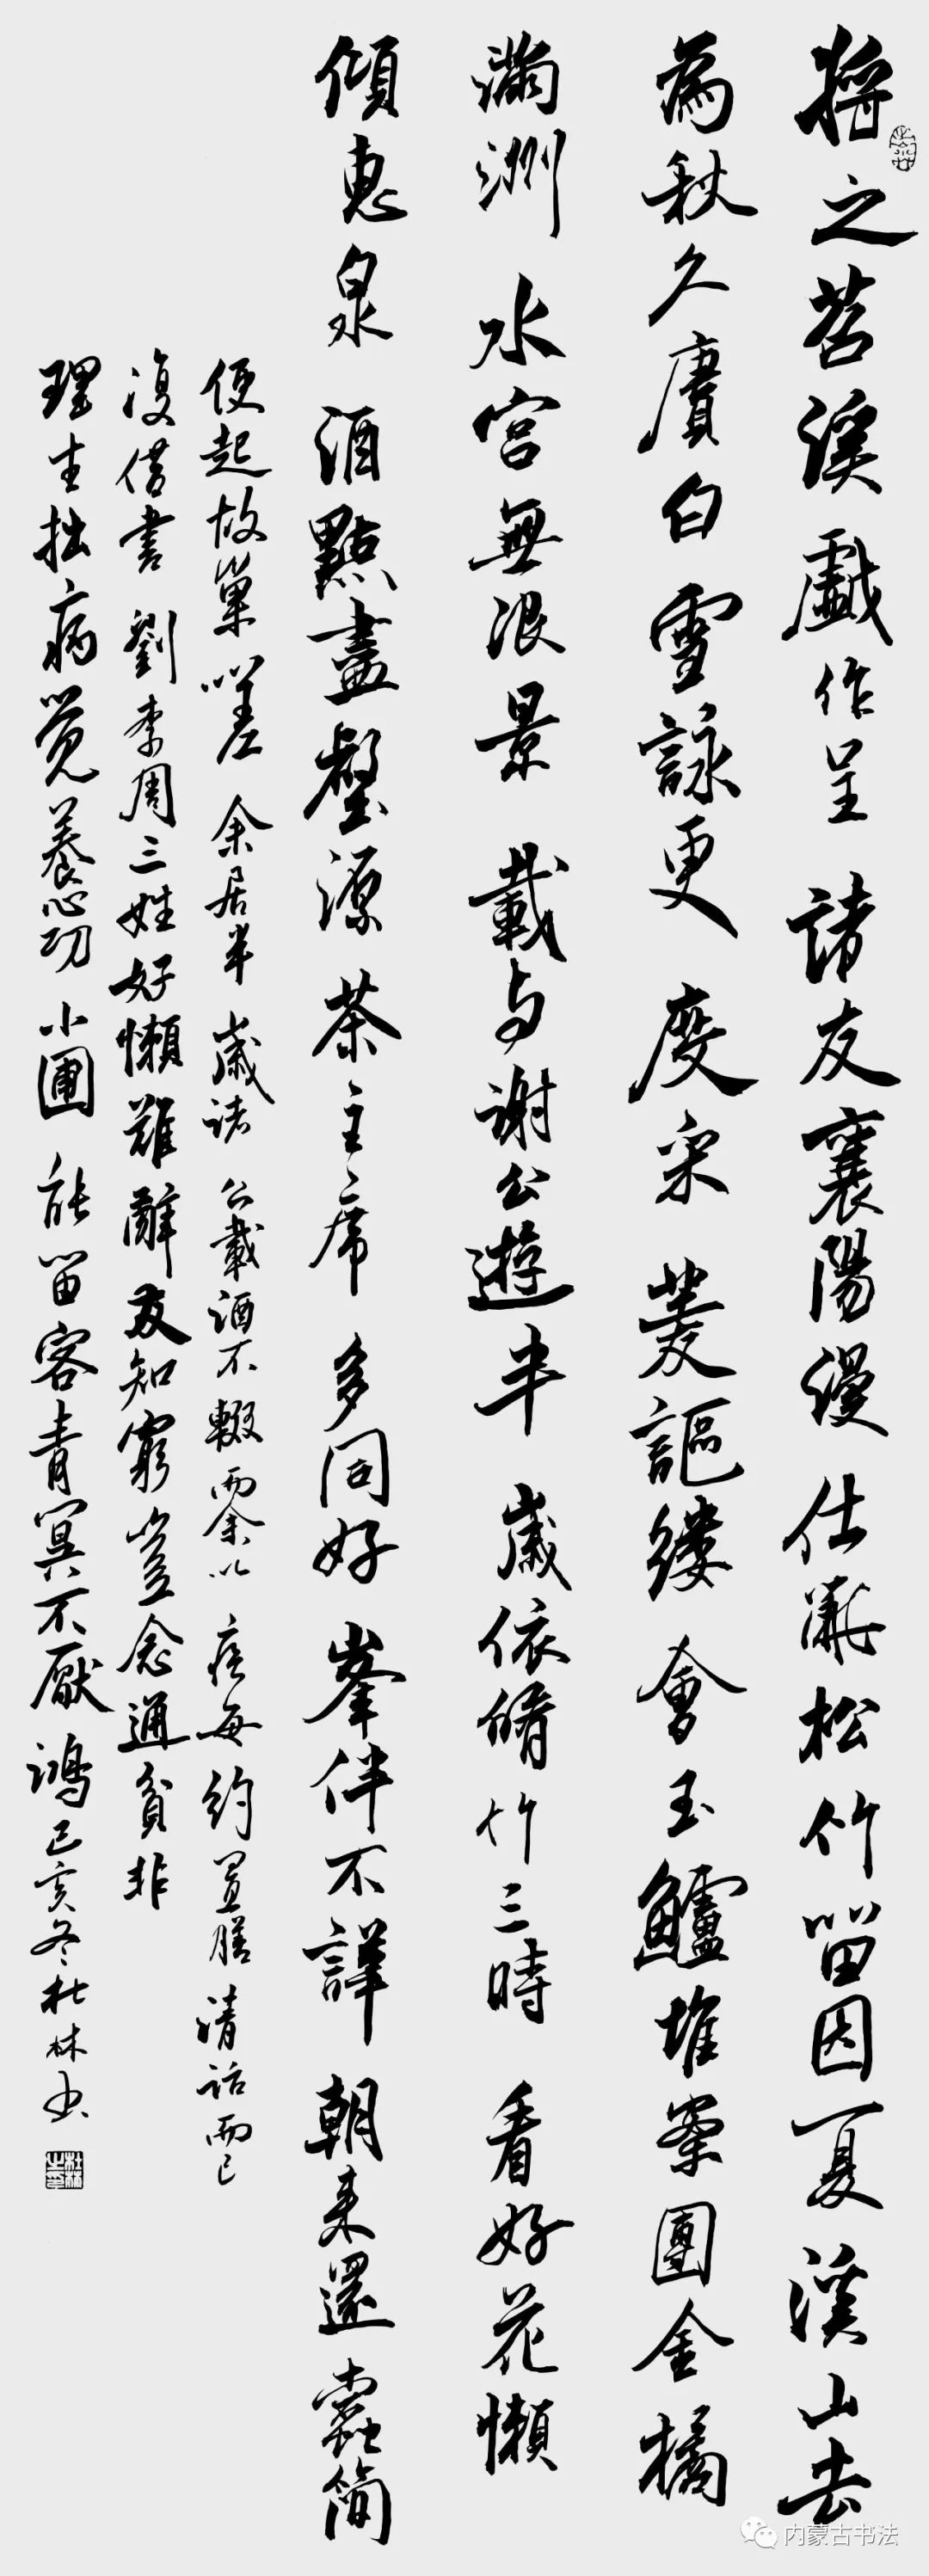 將之苕溪戲作呈諸友襄陽漫仕濰松竹留因夏溪山去
為秋久賡白雪詠更度采菱謳縷會玉鱸堆案團金橘
滿洲水宮無限景載与謝公遊半歲依脩竹三時看好花懶
傾惠泉酒點盡壑源茶主席多同好羣峯伴不譁朝来還蠹简
便起故巢嗟余居半歲諸公載酒不輟而余以疾每約置膳清話而已
復借書劉李周三姓好懶難辭友知窮豈念通貧非
理生拙病觉養心功小圃能留客青冥不厭鸿己亥冬杜林书
杜林之印
内蒙古书法